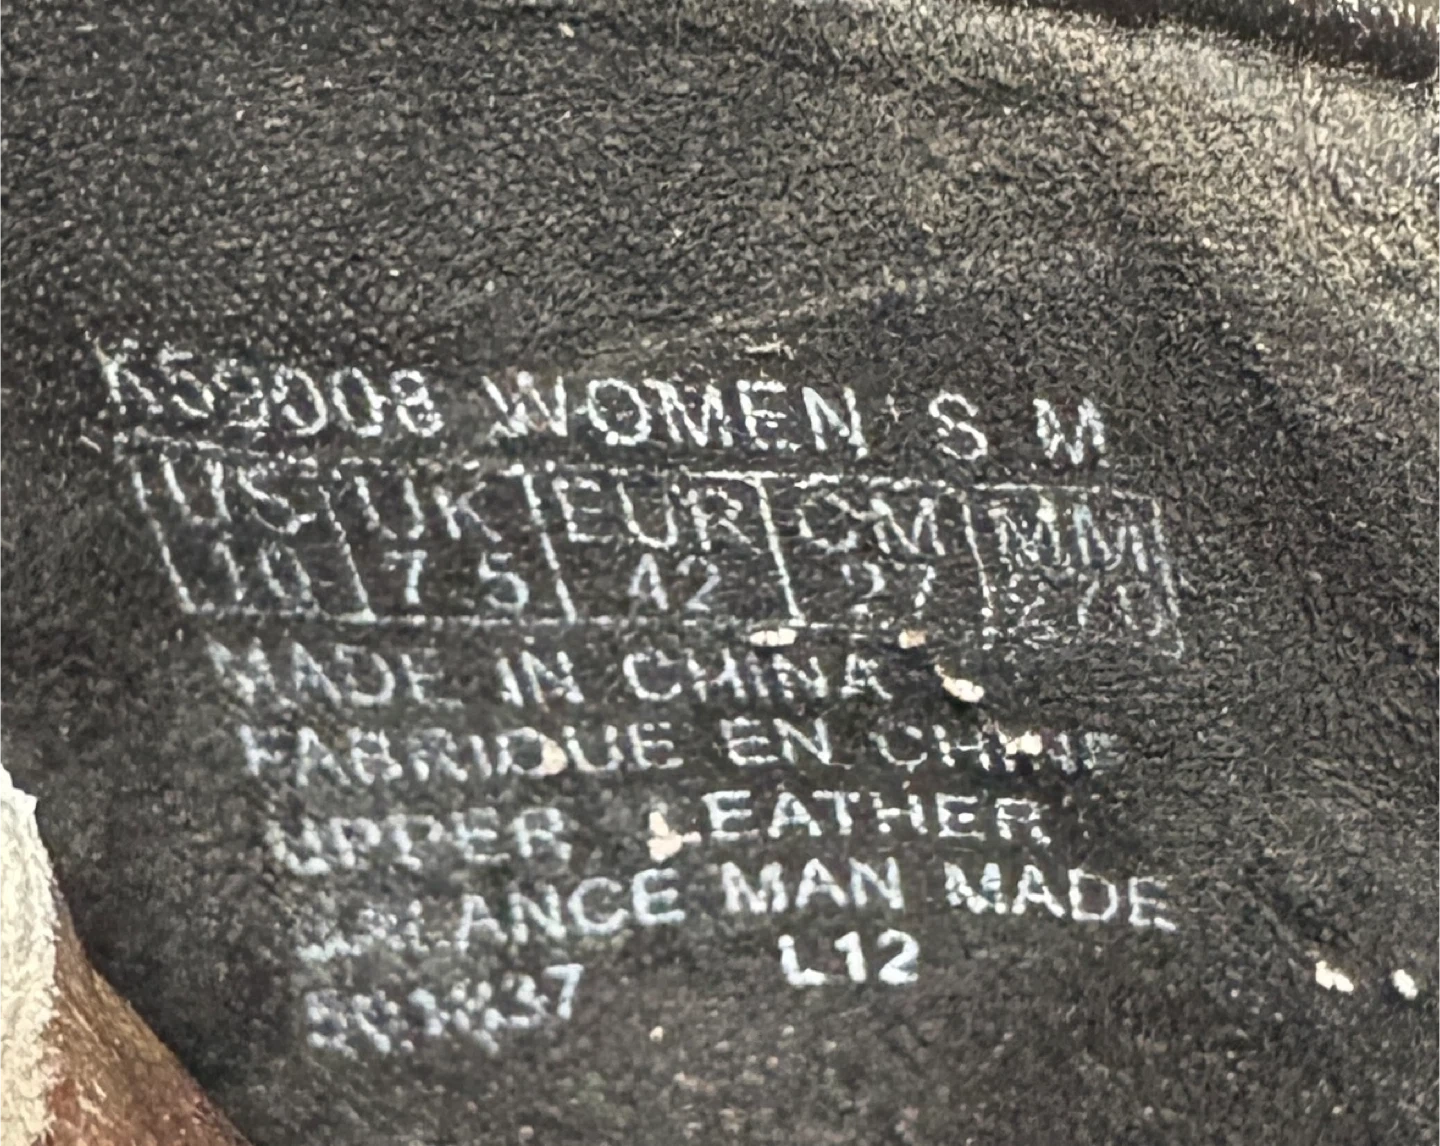 WOMEN S M
US UK EUR CM MM
10 7.5 42 27 270
MADE IN CHINA
FABRIQUE EN CHINE
UPPER LEATHER
BALANCE MAN MADE
L12